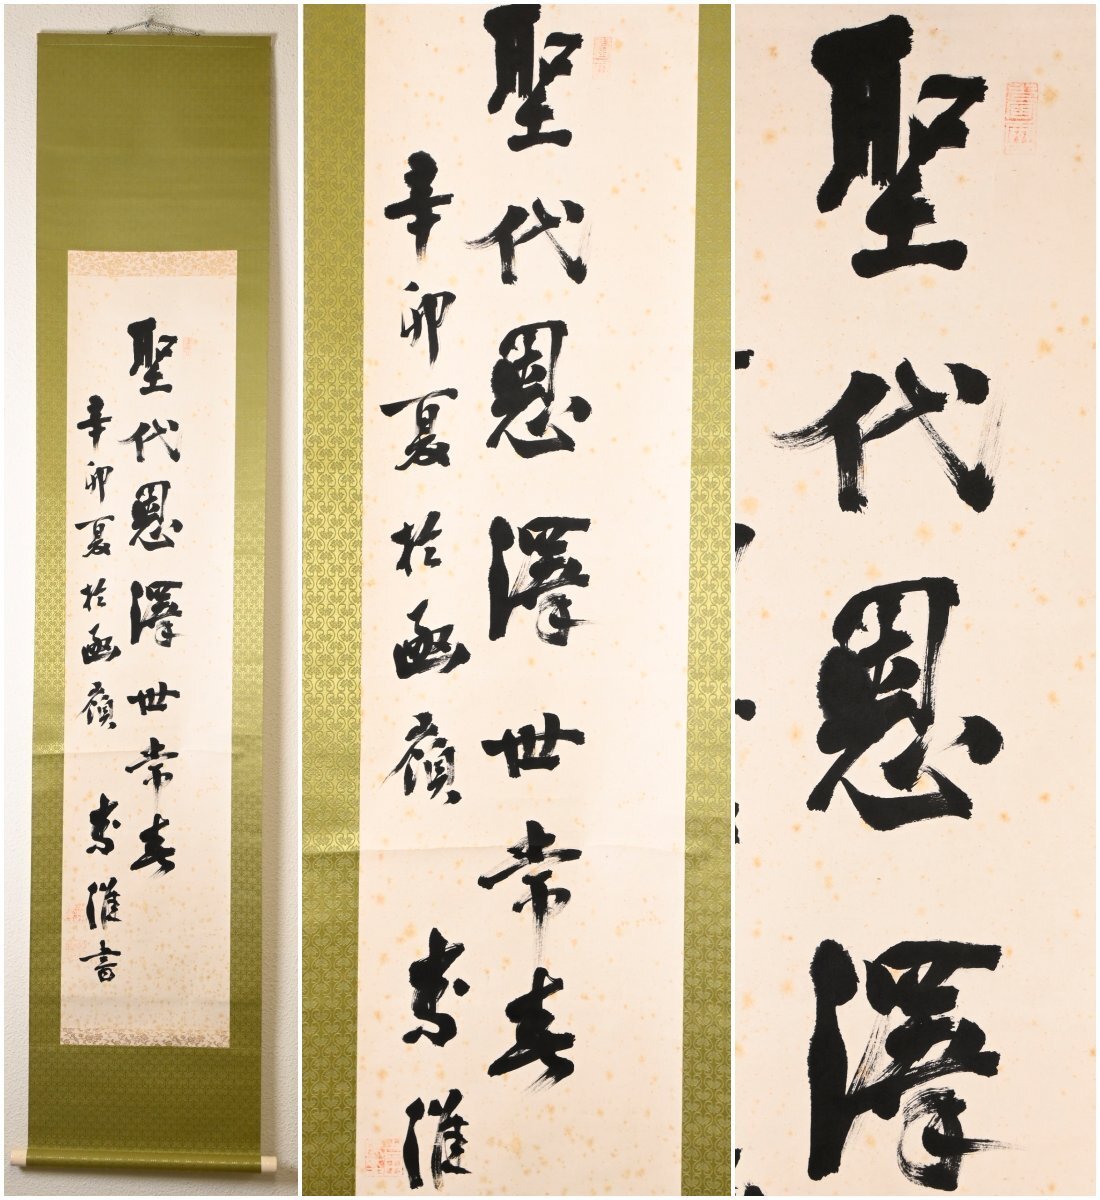 聖代恩澤世常春
辛卯夏於函嶺 書
聖代恩澤世常春
辛卯夏於函嶺
聖代恩澤